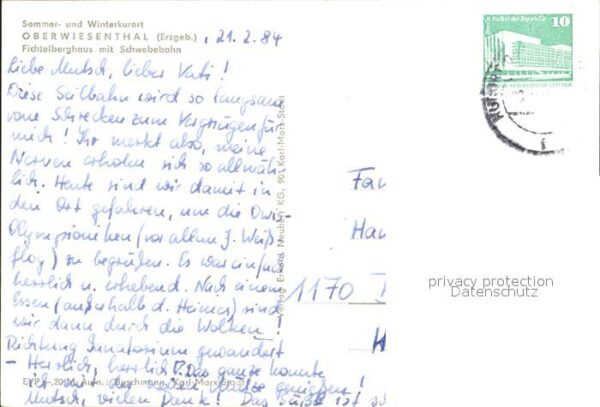 Sommer- und Winterkurort
OBERWIESENTHAL (Erzgeb.) , 21.2.84
Fichtelberghaus mit Schwebebahn
Liebe Mutsch, lieber Vati!
Diese Seilbahn wird so langsam
vom Schrecken zum Vergnügen für
mich! Ihr merkt also, meine
Nerven erholen sich so allmäh-
lich. Heute sind wir damit in
den Ort gefahren, um die
Olympioniken (vor allem J. Weiß-
flog) zu begrüßen. Es war einfach
herrlich u. erhebend. Nach einem
Essen (außerhalb d. Heimes) sind
wir dann durch die Wolken
Richtung Sanatorium gewandert
- Herrlich, herrlich! Das ganze konnte
ich mit der genießen!
Mutsch, vielen Dank! Das ist
10
Palast der Republik
Verlag Erhard Neubert KG, 901 Karl-Marx-Stadt
Fa
Ha
1170
H
privacy protection
Datenschutz
Aufn.: Buschmann, Karl-Marx-Stadt